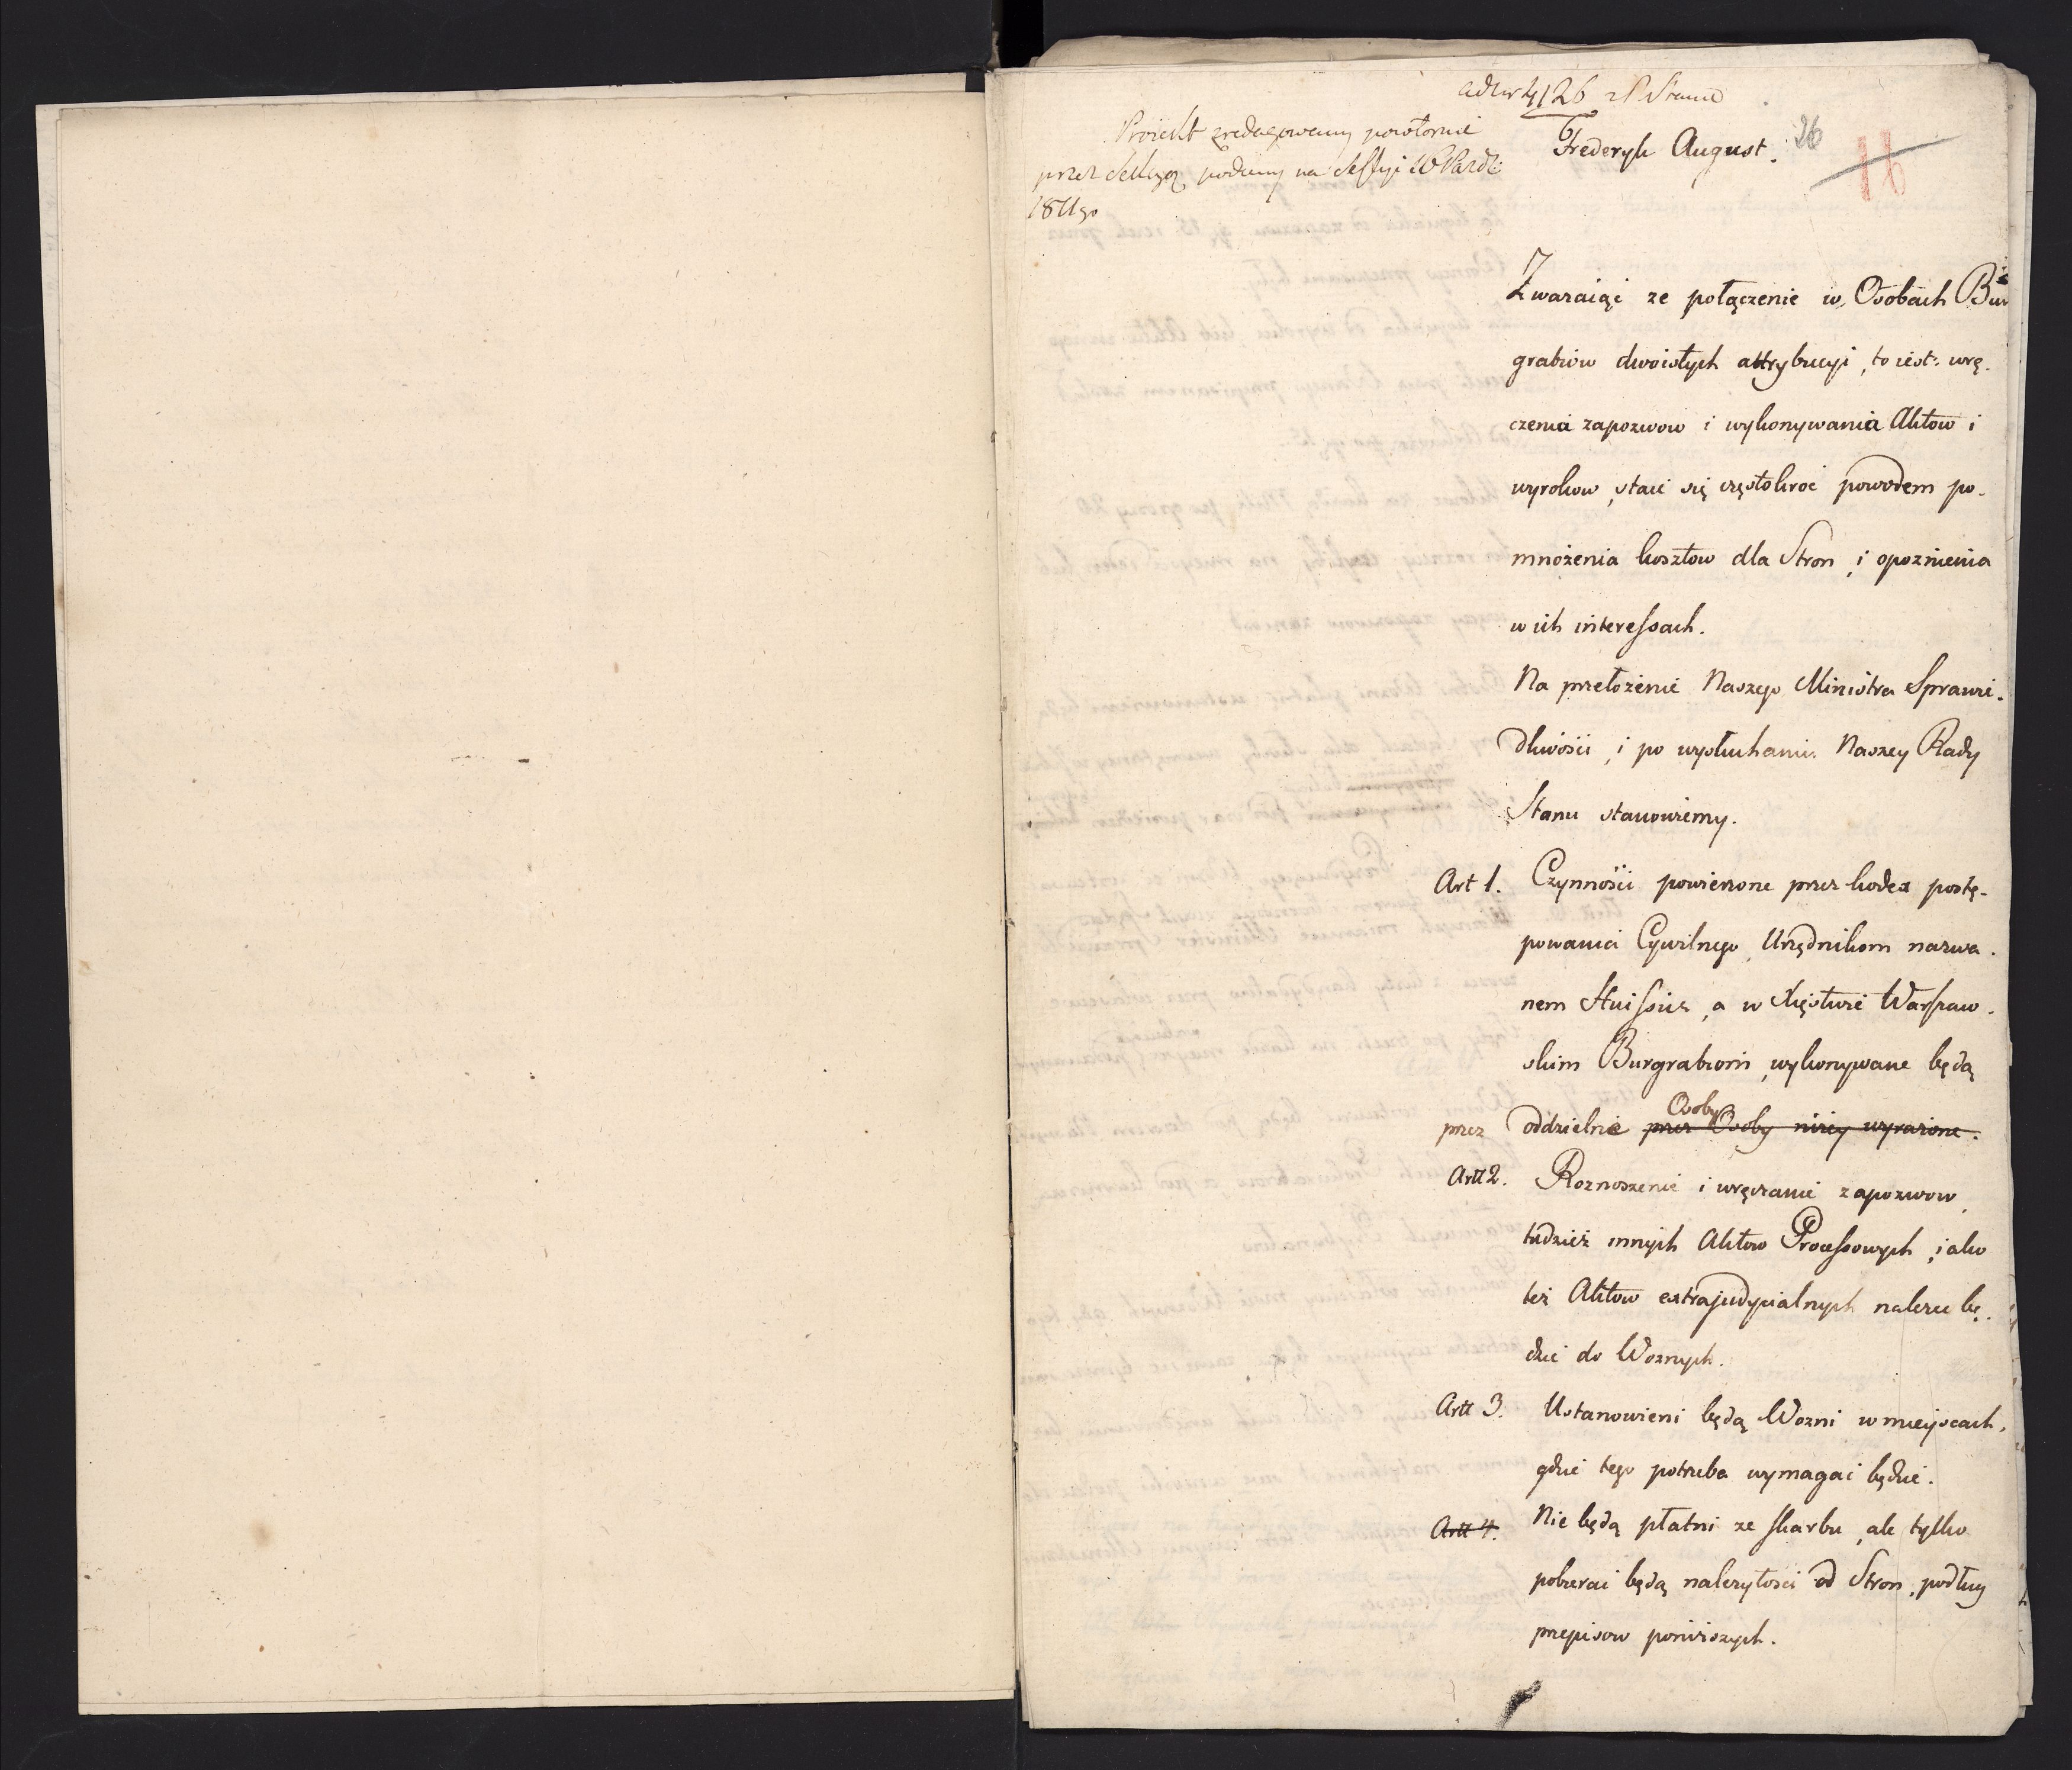 ad Nr 4126 R Stanu
Proiekt zredagowany powtornie
przez Sekcyą podany na Sessyi 16 Paźdz:
1811go
Frederyk August.
26
16
Zważaiąc ze połączenie w Osobach Bur
grabiow dwoistych attrybucyi, to iest: wrę-
czenia zapozwow i wykonywania Aktow i
wyrokow, staie się częstokroć powodem po-
mnożenia kosztow dla Stron, i opoznienia
w ich interessach.
Na przełożenie Naszego Ministra Sprawie-
dliwości, i po wysłuchaniu Naszey Rady
Stanu stanowiemy.
Art 1. Czynności powierzone przez kodex postę-
powania Cywilnego, Urzędnikom nazwa-
nem Huissier, a w Xięstwie Warszaw-
skim Burgrabiom, wykonywane będą
przez oddzielnie Osoby przez Osoby niżey wyrażone.
Artt 2. Roznoszenie i wręczanie zapozwow,
tudzież innych Aktow Processowych, iako
też Aktow extrajudycialnych należeć bę-
dzie do Woznych.
Artt 3. Ustanowieni będą Wozni w mieyscach,
gdzie tego potrzeba wymagać będzie.
Artt 4. Nie będą płatni ze skarbu, ale tylko
pobierać będą należytości od Stron, podług
przepisow poniższych.